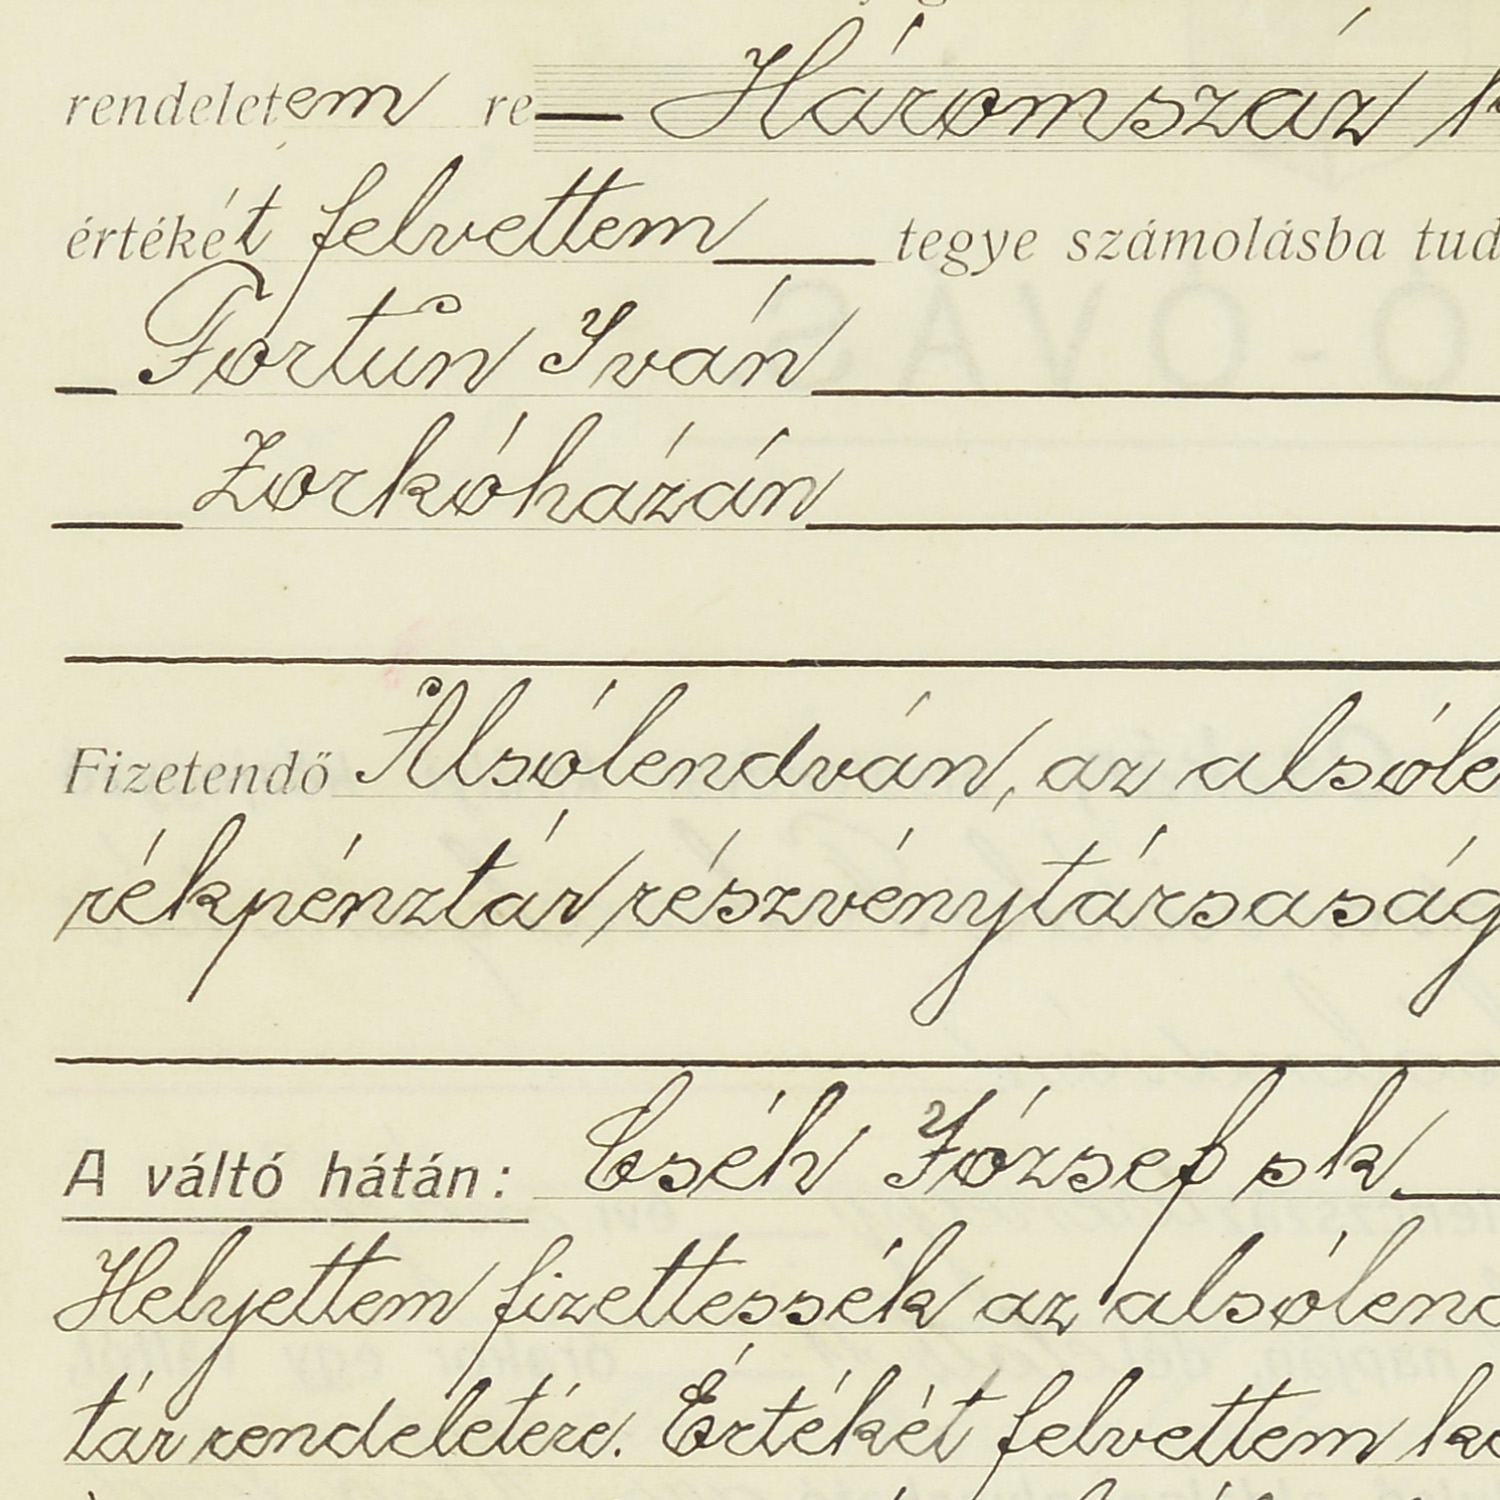 rendeletem re— Háromszáz
értékét felvettem tegye számolásba
Fortun Iván
Zorkóházán
Fizetendő Alsólendván, az alsóle
rékpénztár részvénytársaság
A váltó hátán: Cséh József sk.
Helyettem fizettessék az alsólend
tár rendeletére. Értékét felvettem